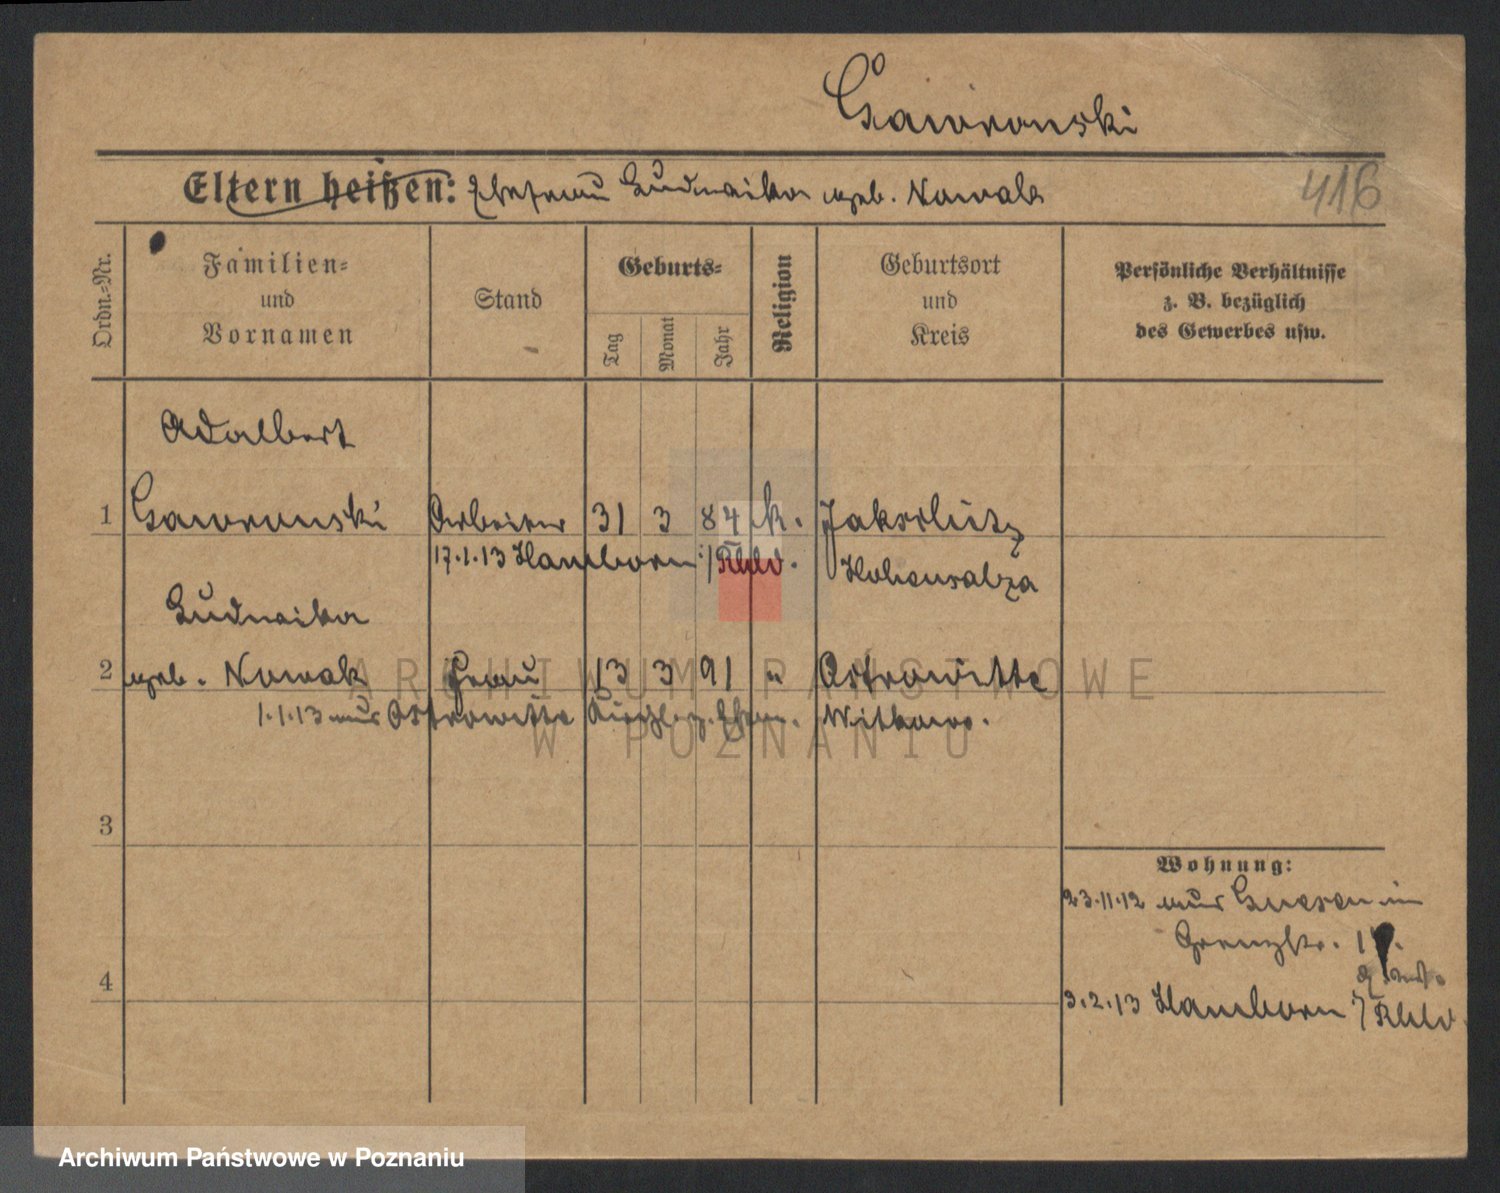 Gawronski
Eltern heißen: Ehefrau Ludwika geb. Nowak
416
Ordn.-Nr.
Familien-
und
Vornamen
Stand
Geburts-
Tag
Monat
Jahr
Religion
Geburtsort
und
Kreis
Persönliche Verhältnisse
z. B. bezüglich
des Gewerbes usw.
Adalbert
1 Gawronski Arbeiter 31 3 84 k. Jaksch
17.1.13 Hamborn /Rhld. Hohensalza
Ludwika
2 geb. Nowak Frau 13 3 91 " Ostrowitte
1.1.13 aus Ostrowitte Witkowo.
3
Wohnung:
23.11.12 aus Gnesen
Grenzstr.
4
3.2.13 Hamborn /Rhld
ARCHIWUM PAŃSTWOWE
W POZNANIU
Archiwum Państwowe w Poznaniu